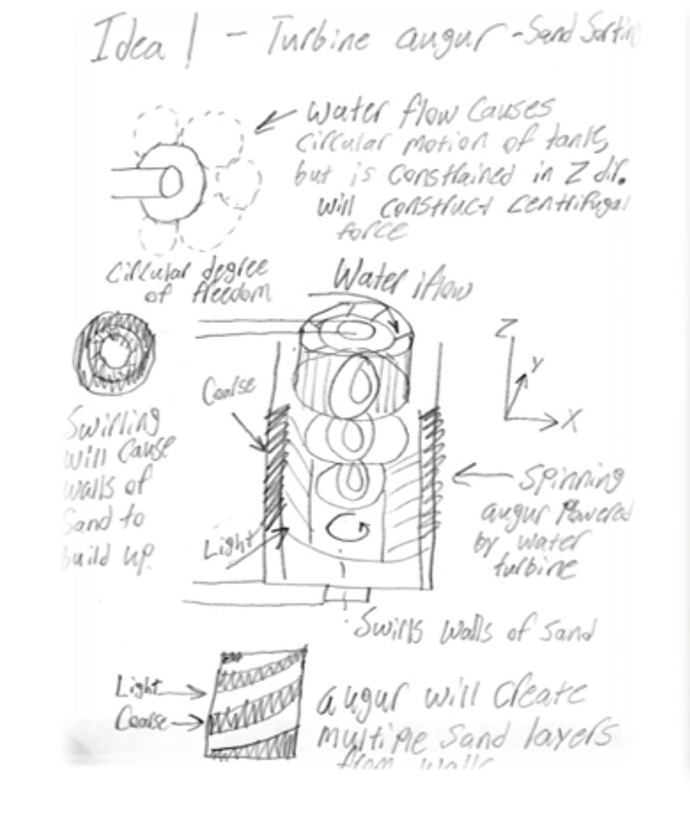 Idea 1 - Turbine augur - Sand Sorting
Water flow causes
circular motion of tank,
but is constrained in Z dir.
will construct centrifugal
force
Circular degree
of freedom
Water iflow
Z
Y
X
Coarse
Swirling
will cause
walls of
Sand to
build up.
Light
Spinning
augur Powered
by water
turbine
Swirls walls of sand
Light
Coarse
augur will create
multiple sand layers
from walls